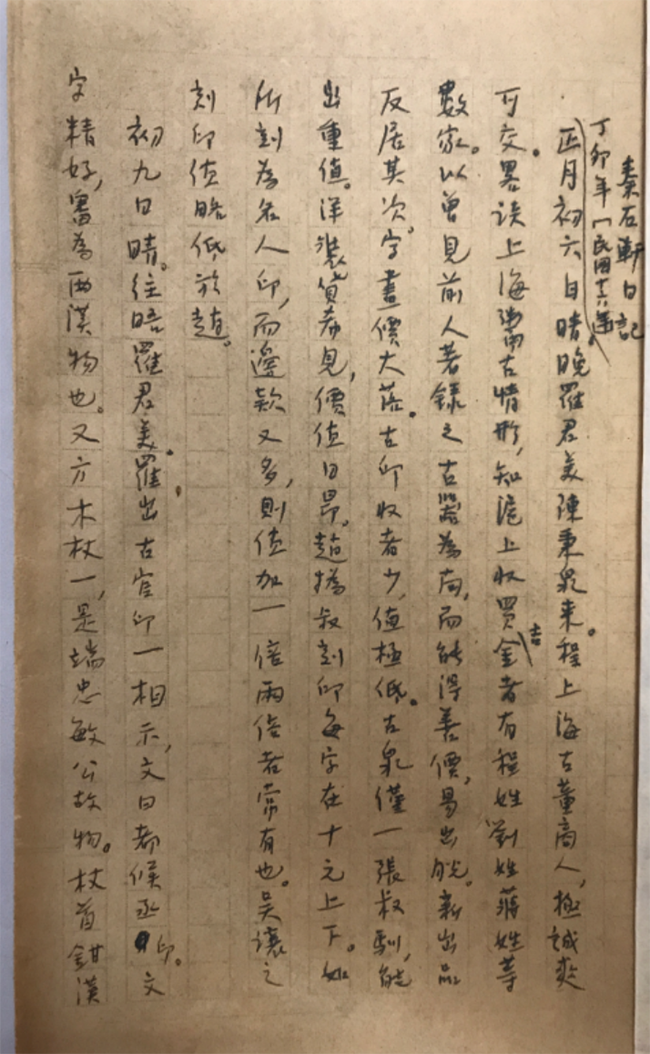 秦石軒日記
丁卯年(民國十六年)
正月初六日晴。晚羅君美陳秉泉来。程上海古董商人,極誠爽
可交。畧談上海鬻古情形,知滬上收買吉金者有程姓劉姓蔣姓等
數家。以曽見前人著録之古器為商,而能得善價,易出脱。新出品
反居其次。字畫價大落。古印收者少,值極低。古泉僅一張叔馴,能
出重值。洋裝貨希見,價值日昂。趙撝叔刻印每字在十元上下。如
所刻為名人印,而邊款又多,則值加一倍兩倍者常有也。吳讓之
刻印值略低於趙。
初九日晴。往晤羅君美。羅出古官印一相示,文曰都候丞印。文
字精好,審為兩漢物也。又方木杖一,是端忠敏公故物。杖首鉗漢